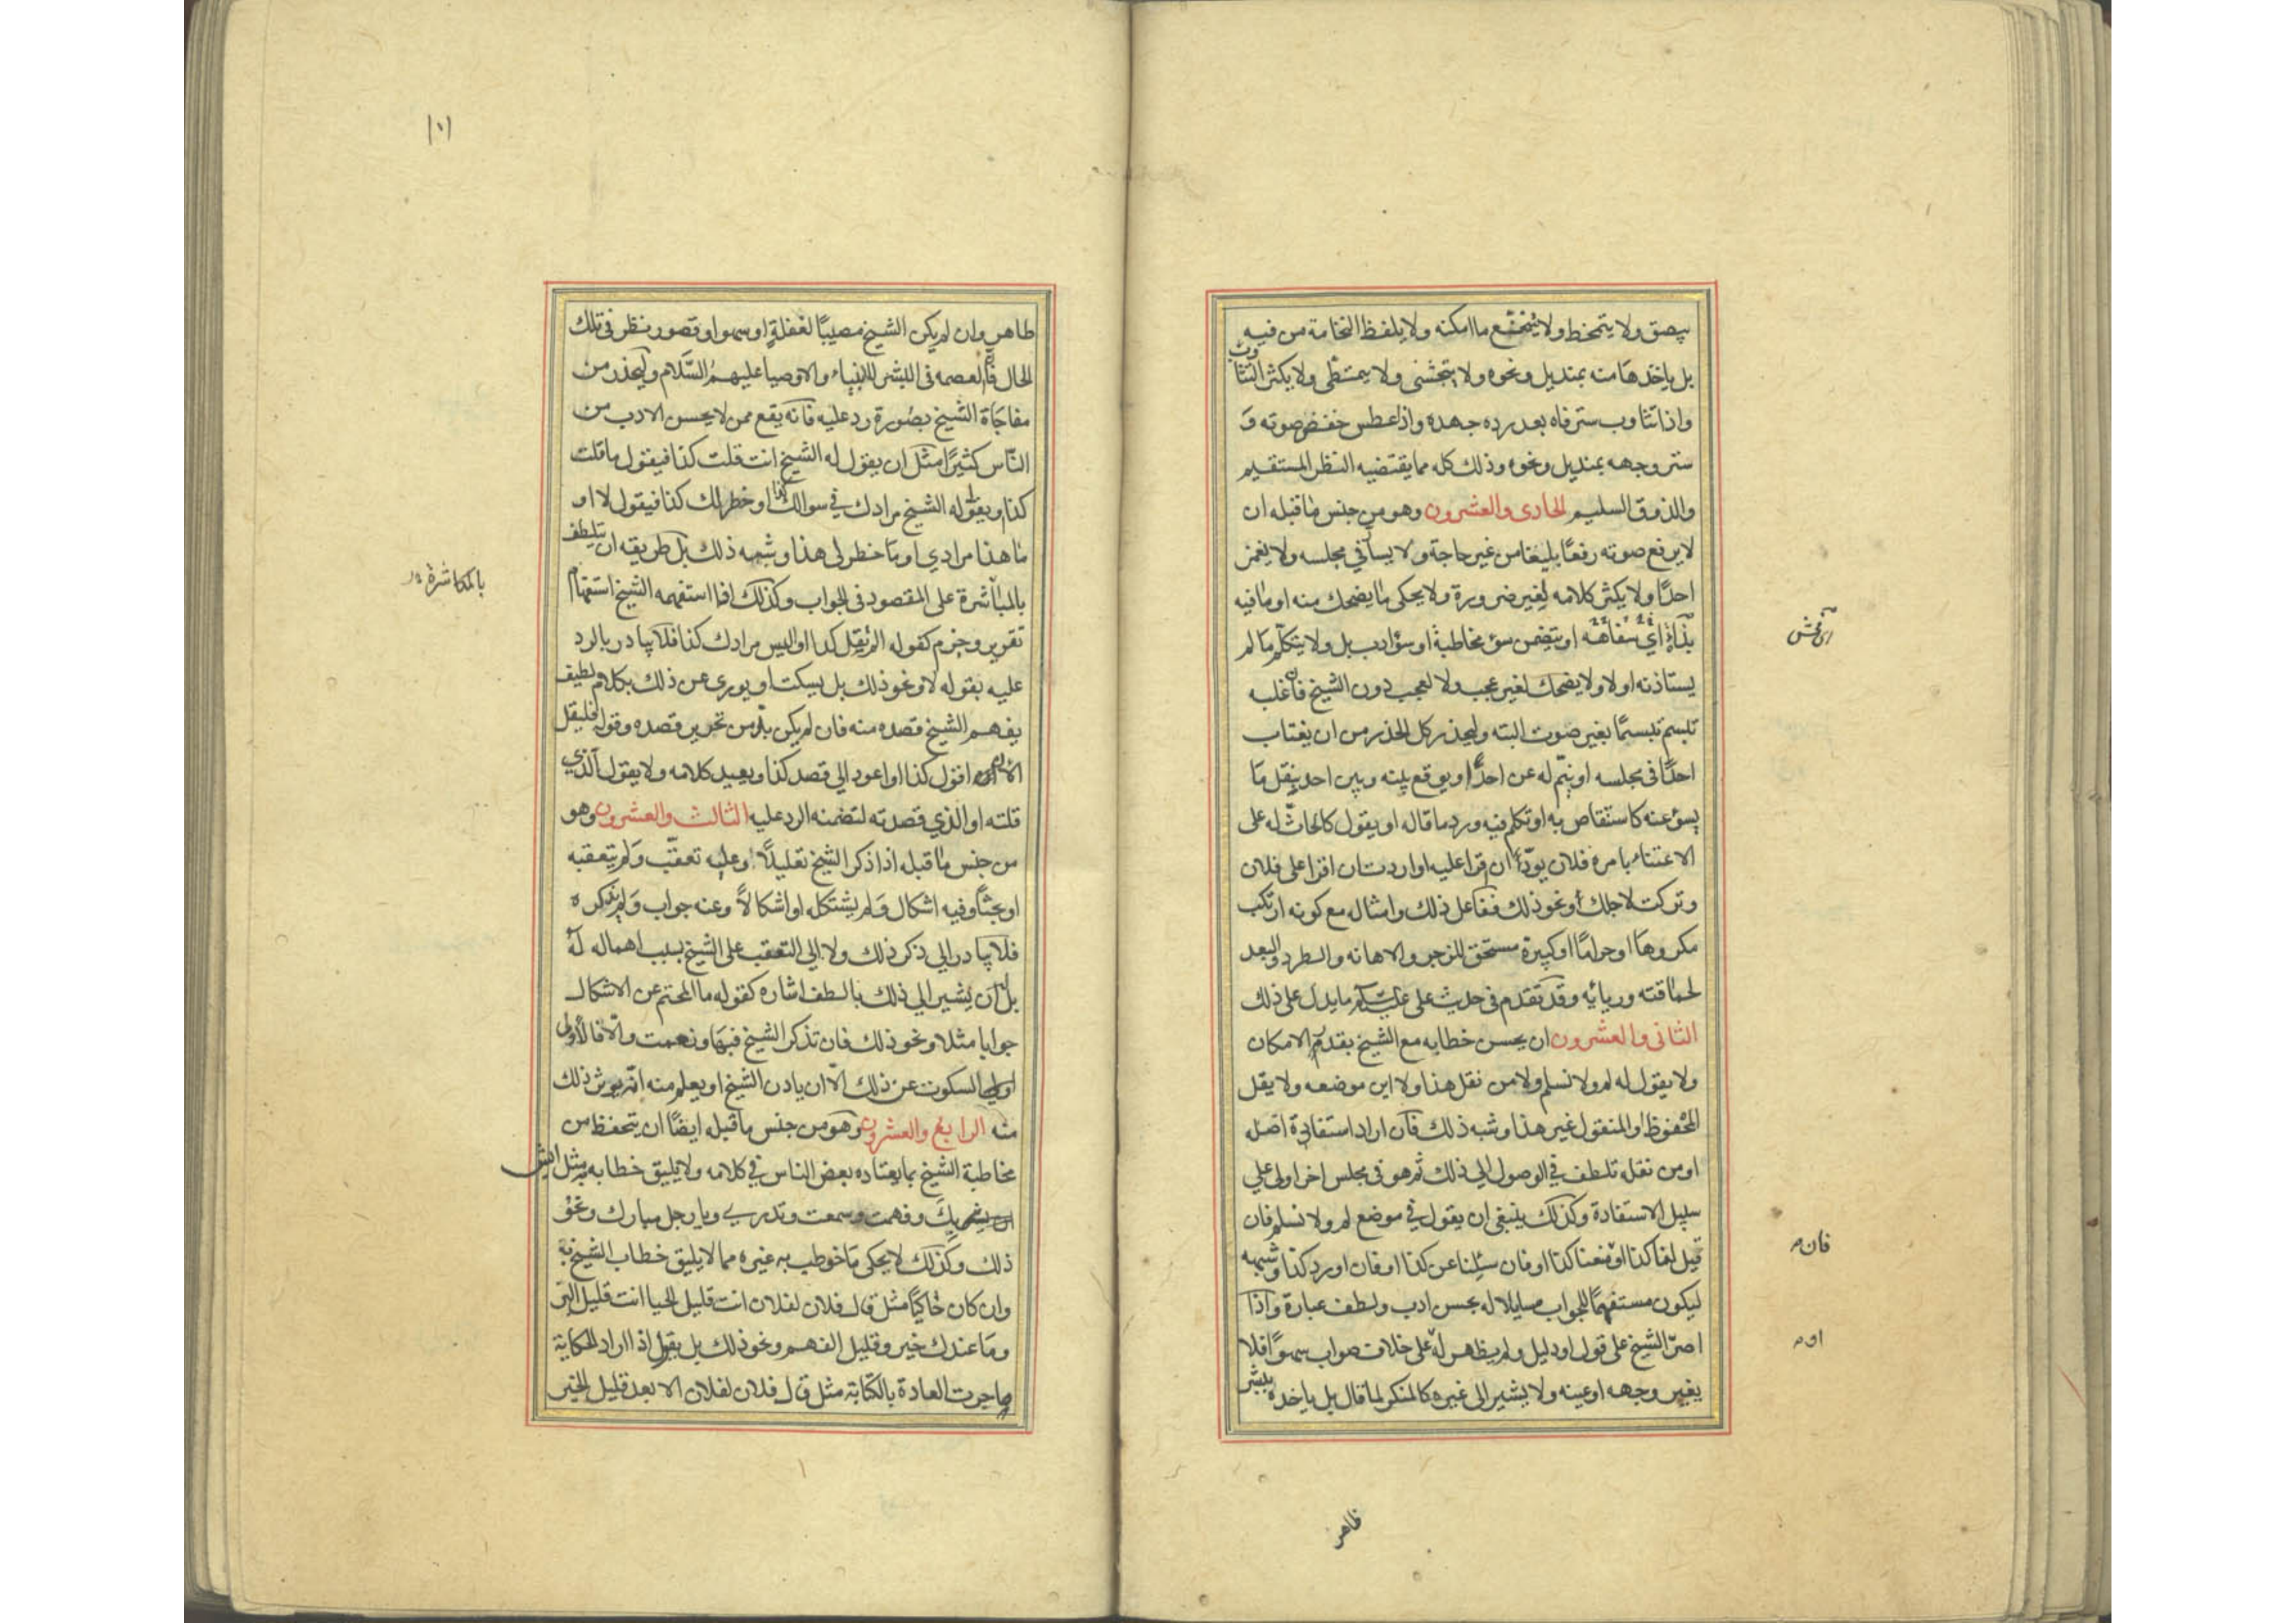 يبصق ولا يتمخط ولا يتنخع ما امكنه ولا يلفظ النخامة من فيه
بل ياخذها منه بمنديل ونحوه ولا يتجشى ولا يتمطى ولا يكثر التثاوب
واذا تثاوب ستر فاه بعد رده جهده واذا عطس خفض صوته و
ستر وجهه بمنديل ونحوه وذلك كله مما يقتضيه النظر المستقيم
والذوق السليم الحادى والعشرون وهو من جنس ما قبله ان
لا يرفع صوته رفعًا بليغا من غير حاجة ولا يسآ في مجلسه ولا يغمز
احدًا ولا يكثر كلامه لغير ضرورة ولا يحكى ما يضحك منه او ما فيه
بذآءة اي سفاهه او يتضمن سؤ مخاطبة او سؤ ادب بل ولا يتكلم ما لم
اى فحش
يستاذنه اولا ولا يضحك لغير عجب ولا لعجب دون الشيخ فان غلبه
تبسم تبسمًا بغير صوت البته وليحذر كل الحذر من ان يغتاب
احدًا فى مجلسه او ينم له عن احدٍ او يوقع بينه وبين احد بنقل ما
يسؤ عنه كاستنقاص به او تكلم فيه ورد ما قاله او يقول كالحاث له على
الاعتناء بامره فلان يودّ ان قرا عليه او اردت ان اقرا على فلان
وتركت لاجلك أو نحو ذلك ففاعل ذلك وامثاله مع كونه ارتكب
مكروهًا او حرامًا او كبيرة مستحق للزجر والاهانه والطرد والبعد
لحماقته وريائه وقد تقدم فى حديث على عليه السلام ما يدل على ذلك
الثانى والعشرون ان يحسن خطابه مع الشيخ بقدر الامكان
ولا يقول له لم ولا نسلم ولا من نقل هذا ولا اين موضعه ولا يقل
المحفوظ او المنقول غير هذا وشبه ذلك فان اراد استفادة اصله
او من نقله تلطف في الوصول الي ذلك ثم هو فى مجلس اخر اولى علي
سبيل الاستفادة وكذلك ينبغى ان يقول في موضع لم ولا نسلم فان
قيل لنا كذا او منعنا كذا او فان سئلنا عن كذا او فان اورد كذا وشبهه
فان
ليكون مستفهمًا للجواب سايلا له بحسن ادب ولطف عبارة واذا
اصرّ الشيخ على قول او دليل ولم يظهر له على خلاف صواب سهوًا فلا
او
يغير وجهه او عينه ولا يشير الى غيره كالمنكر لما قال بل ياخذه ببشر
ظاهر
١٠١
ظاهر وان لم يكن الشيخ مصيبًا لغفلةٍ او سهو او قصور نظر فى تلك
الحال فان العصمه فى البشر للانبياء والاوصيا عليهم السَّلام وليحذر من
مفاجَاة الشيخ بصُورة رد عليه فانه يقع ممن لا يحسن الادب من
النّاس كثيرًا مثل ان يقول له الشيخ انت قلت كذا فيقول ما قلت
كذا ويقول له الشيخ مرادك في سوالك كذا او خطر لك كذا فيقول لا او
ما هذا مرادي او ما خطر لى هذا وشبه ذلك بل طريقه ان يتلطف
بالمباشرة على المقصود فى الجواب وكذلك اذا استفهمه الشيخ استفهام
بالمكاشرة
تقرير وجزم كقوله الم تقل كذا او اليس مرادك كذا فلا يبادر بالرد
عليه بقوله لا ونحو ذلك بل يسكت او يورى عن ذلك بكلام لطيف
يفهم الشيخ قصده منه فان لم يكن بدّ من تحرير قصده وقوله فليقل
الان اقول كذا او اعود الي قصد كذا ويعيد كلامه ولا يقول الذي
قلته او الذي قصدته لتضمنه الرد عليه الثالث والعشرون وهو
من جنس ما قبله اذا ذكر الشيخ تعليلًا وعليه تعقّب ولم يتعقبه
او بحثًا وفيه اشكال ولم يستشكله او اشكالاً وعنه جواب ولم يذكره
فلا يبادر الي ذكر ذلك ولا الي التعقب على الشيخ بسبب اهماله له
بل له ان يشير الي ذلك بالطف اشاره كقوله ما المحتم عن الاشكال
جوابا مثلا ونحو ذلك فان تذكر الشيخ فبها ونعمت والّا فالأولى
السكوت عن ذلك الّا ان ياذن الشيخ او يعلم منه انه يوثر ذلك
منه الرابع والعشرون وهو من جنس ما قبله ايضًا ان يتحفظ من
مخاطبة الشيخ بما يعتاده بعض الناس في كلامه ولا يليق خطابه به مثل ايش
بك وفهمت وسمعت وتدرى ويا رجل مبارك ونحو
ذلك وكذلك لا يحكى ما خوطب به غيره مما لا يليق خطاب الشيخ به
وان كان حاكيًا مثل قال فلان لفلان انت قليل الحيا انت قليل البر
وما عندك خير وقليل الفهم ونحو ذلك بل يقول اذا اراد الحكاية
ما جرت العادة بالكناية مثل قال فلان لفلان الابعد قليل الخير